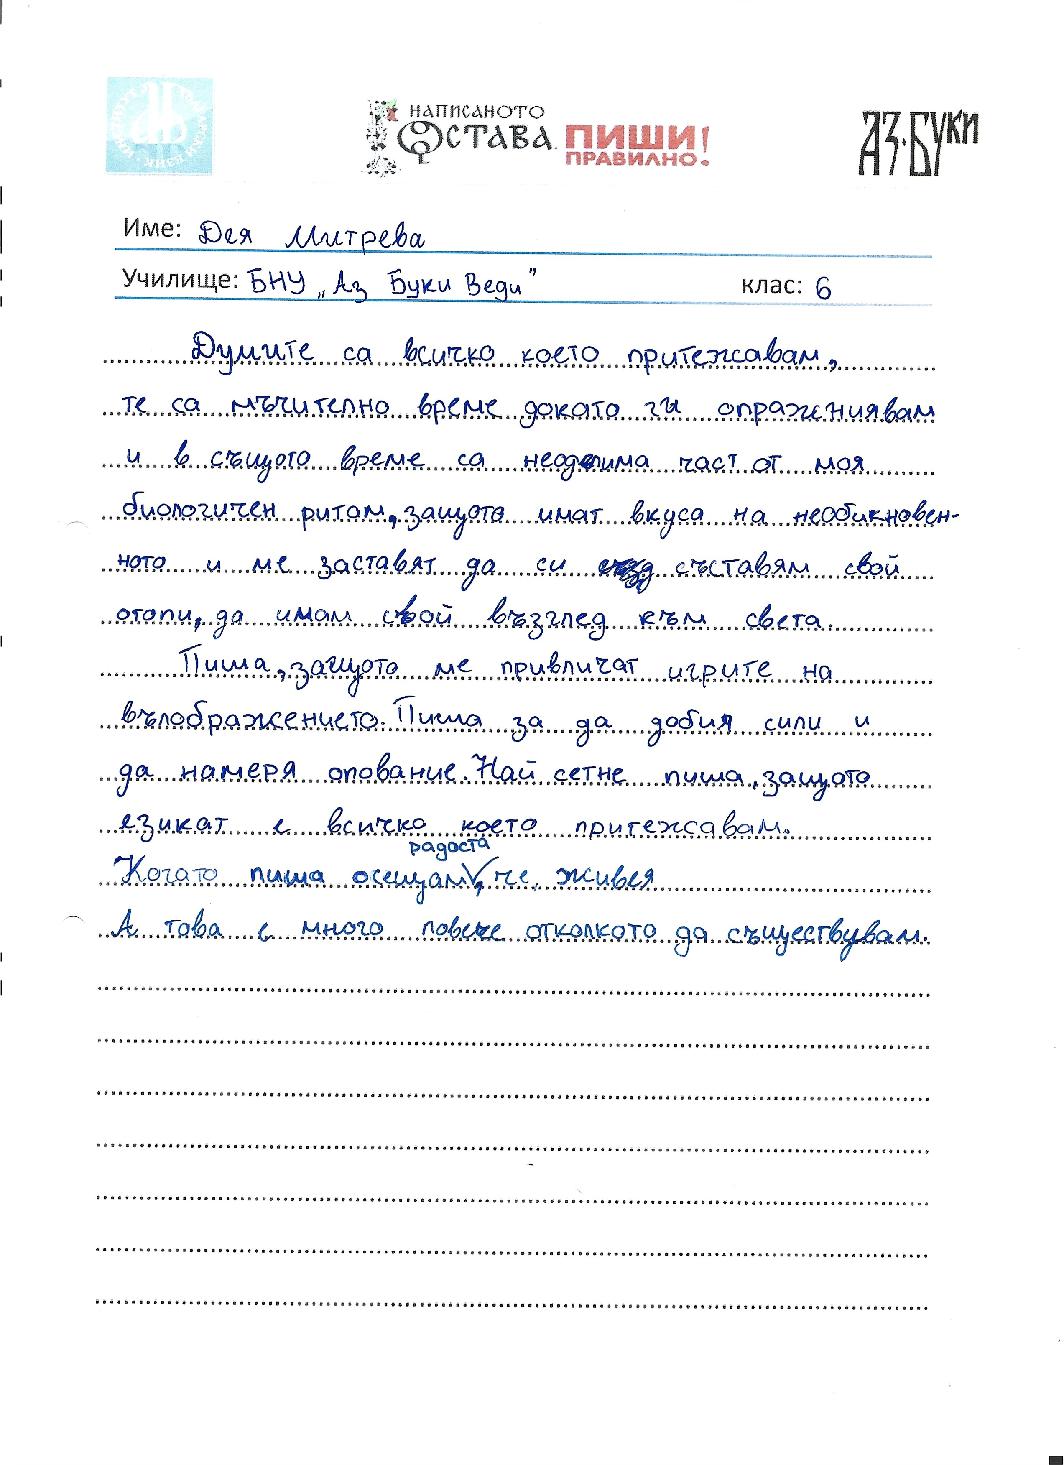 НАПИСАНОТО
ОСТАВА ПИШИ!
ПРАВИЛНО.
АЗ·БУКИ
Име: Дея Митрева
Училище: БНУ „Аз Буки Веди” клас: 6
Думите са всичко което притежавам,
те са мъчително време докато ги опражениявам
и в същото време са неоделима част от моя
биологичен ритам, защото имат вкуса на необикновен-
ното и ме заставят да си съставям свой
отопи, да имам свой възглед към света.
Пиша, защото ме привличат игрите на
вълображението. Пиша за да добия сили и
да намеря опование. Най сетне пиша, защото
езикат е всичко което притежавам.
радоста
Когато пиша осещам, че живея
А това е много повече отколкото да съществувам.